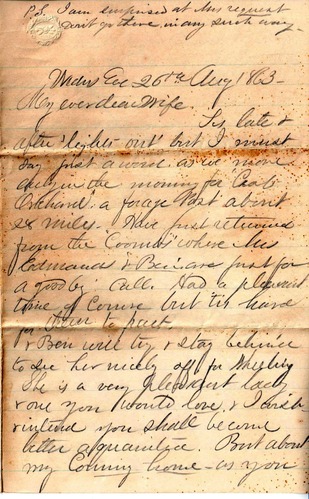 P.S. I am surprised at Mrs request
Don't go there in any such way.
Weds Eve 26th Aug 1863 -
My ever dear Wife.
Tis late &
after 'lights out' but I must
say just a word as we move
early in the morning for Cab
Orchard: a forage Post about
28 miles. Have just returned
from the Coombs where Mrs
Edmands & Ben are just for
a goodby call. Had a pleasant
time of course but tis hard
for to part
& Ben will try & stay behind
to see her nicely off for
She is a very pleasant lady
& one you would love, & I wish
& intend you shall become
better acquainted. But about
my coming home - as you